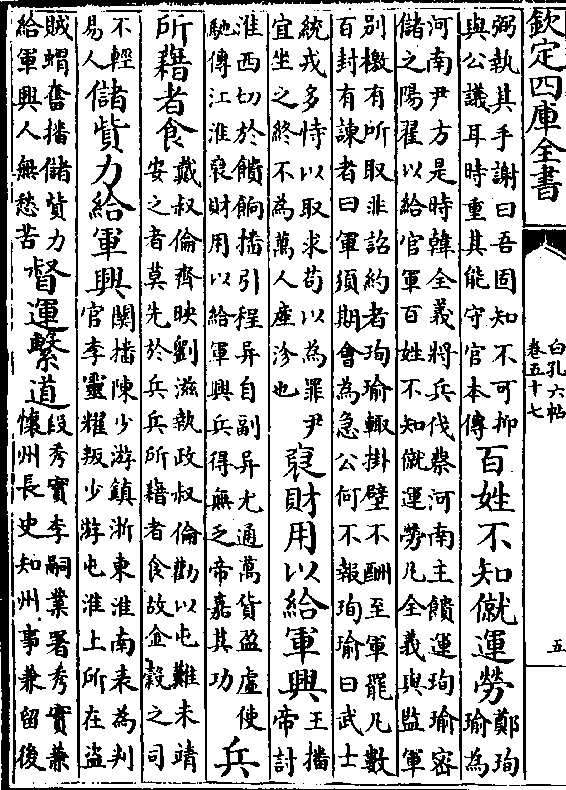 欽定四庫全書
白孔六帖
卷五十七
五
弼執其手謝曰吾固知不可抑
與公議耳時重其能守官本傳
百姓不知僦運勞
鄭珣
瑜為
河南尹方是時韓全義將兵伐蔡河南主饋運珣瑜密
儲之陽翟以給官軍百姓不知僦運勞凡全義與監軍
別檄有所取非詔約者珣瑜輒掛壁不酬至軍罷凡數
百封有諫者曰軍須期會為急公何不報珣瑜曰武士
統戎多恃以取求苟以為罪尹
宜坐之終不為萬人產沴也
裒財用以給軍興
王播
帝討
淮西切於饋餉播引程异自副异尤通萬貨盈虛使
馳傳江淮裒財用以給軍興兵得無乏帝嘉其功
兵
所藉者食
戴叔倫齊映劉滋執政叔倫勸以屯難未靖
安之者莫先於兵兵所藉者食故金穀之司
不輕
易人
儲貲力給軍興
關播陳少游鎮浙東淮南表為判
官李靈耀叛少游屯淮上所在盜
賊蝟奮播儲貲力
給軍興人無愁苦
督運繫道
段秀實李嗣業署秀實兼
懷州長史知州事兼留後